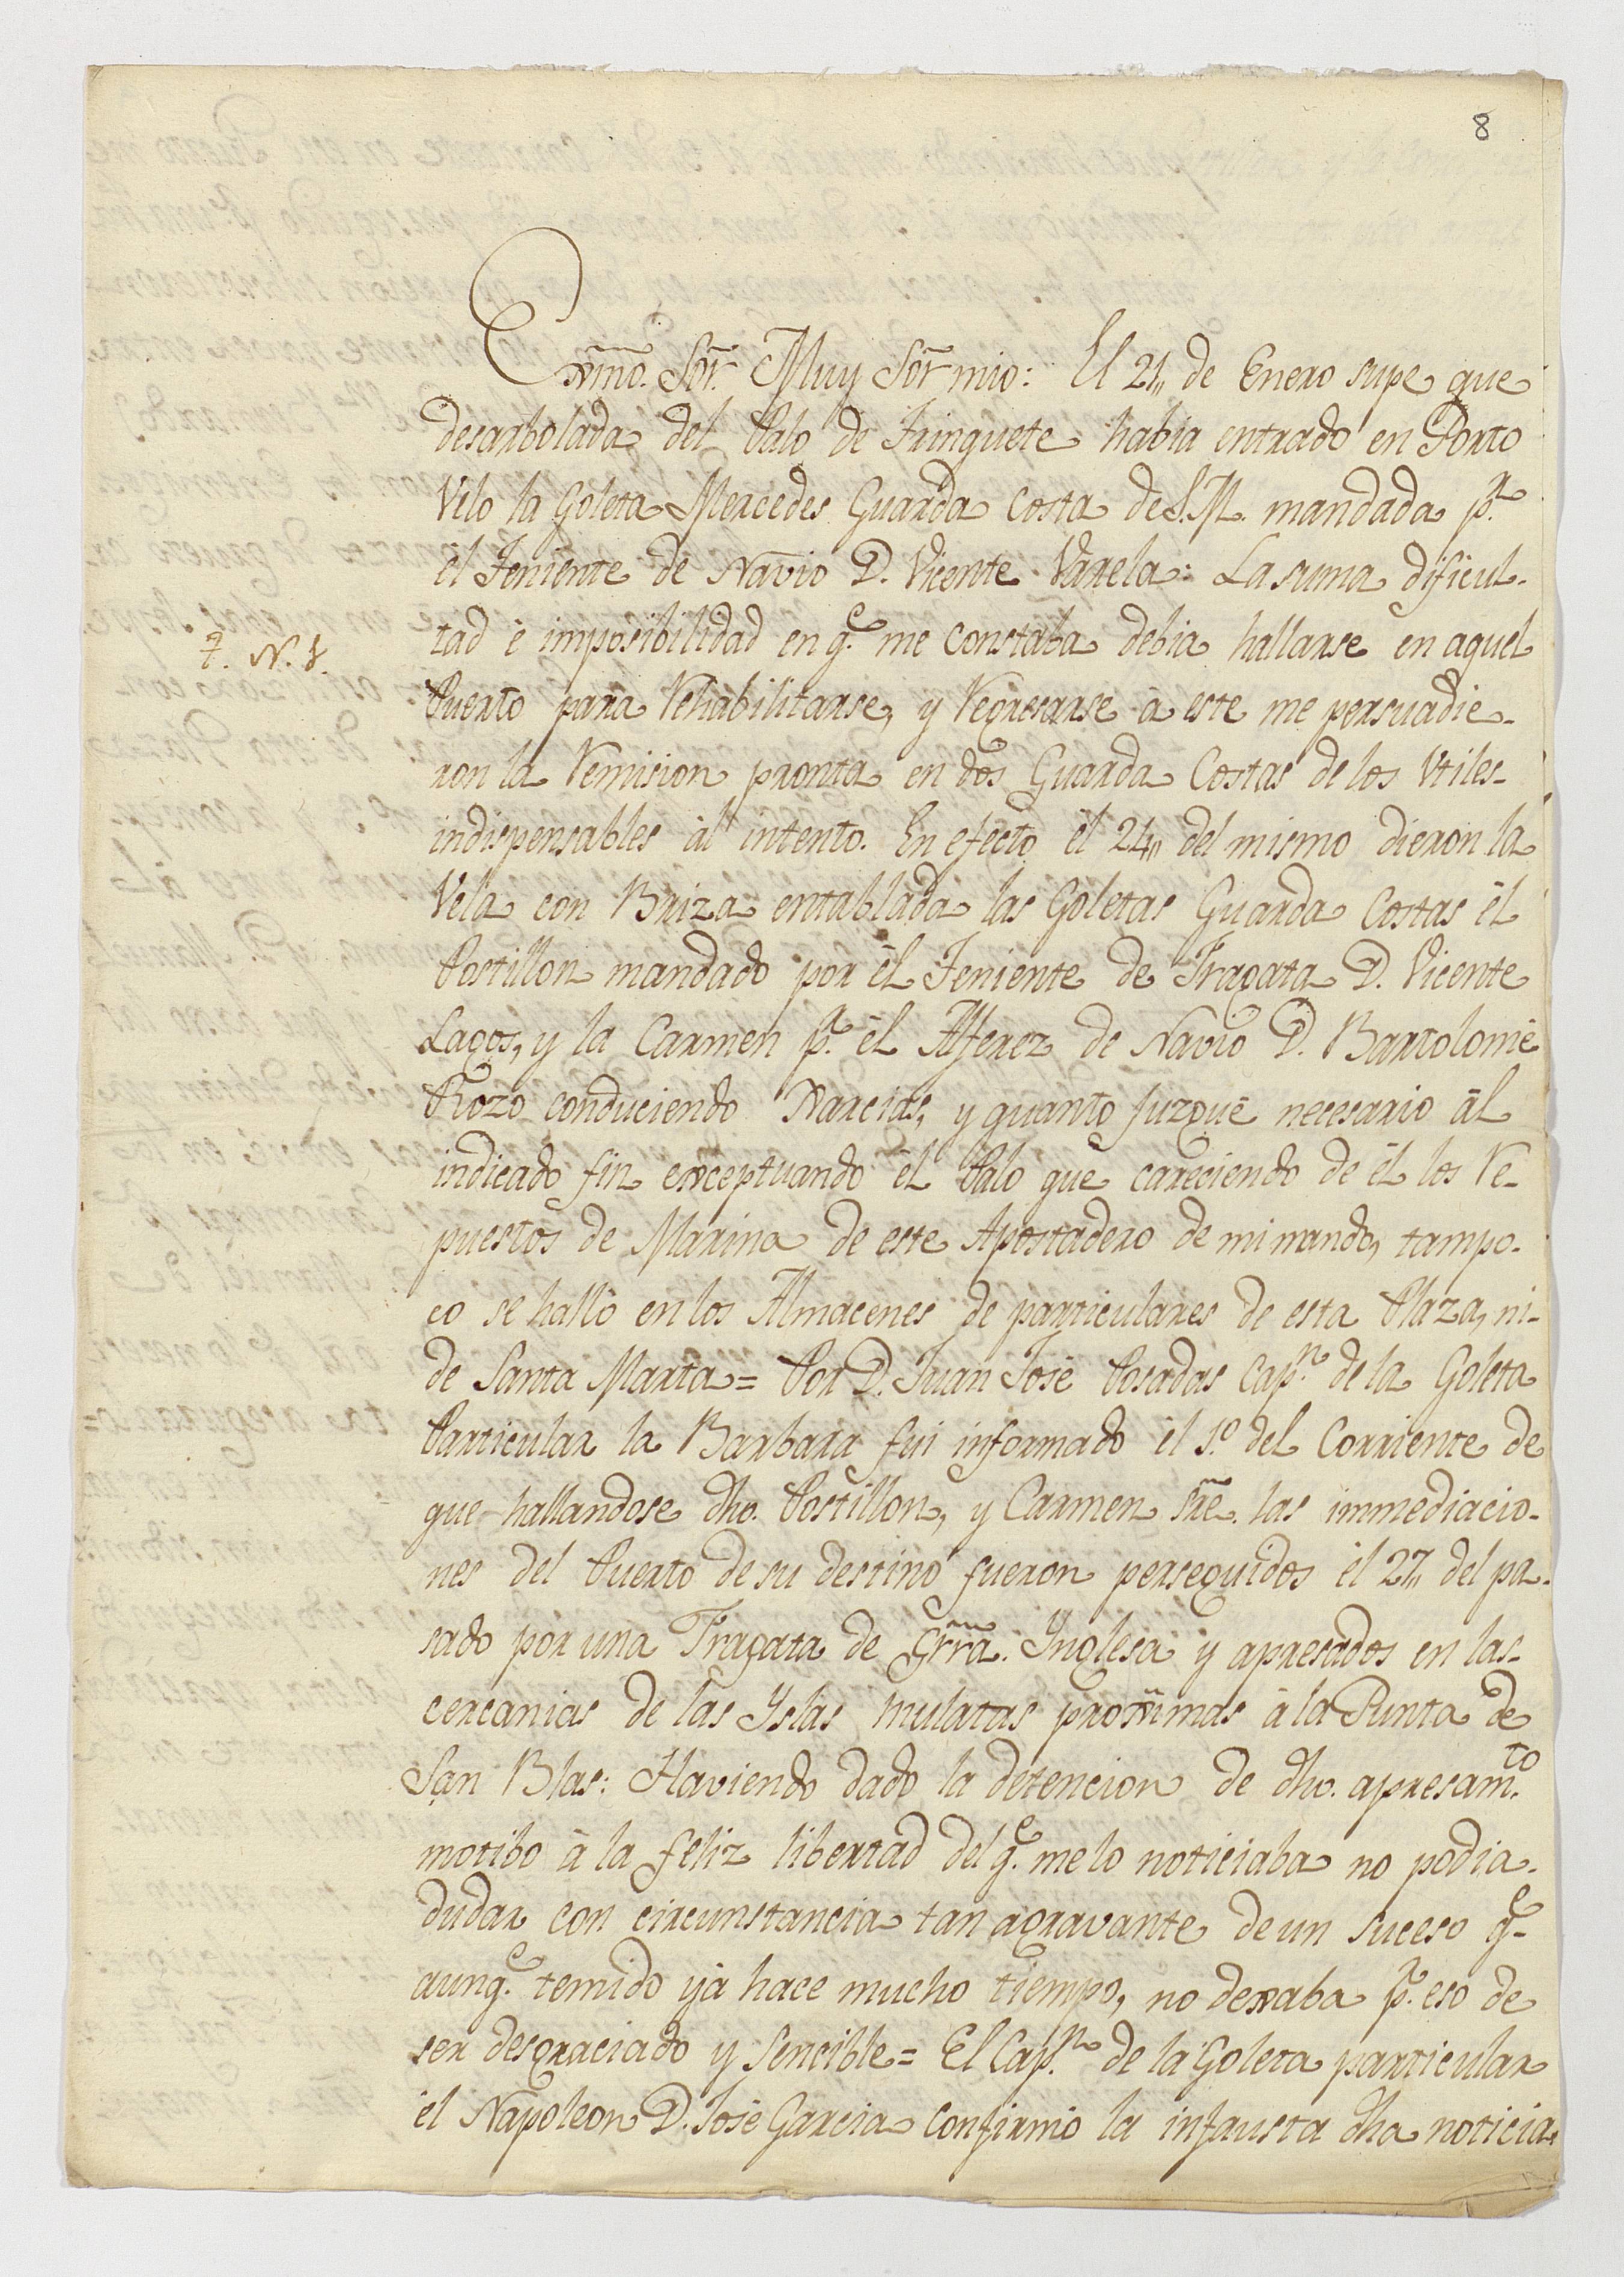 8
Exm̃o. Sõr. Muy Sõr mio: El 21,, de Enero supe que
desarbolada del Palo de Trinquete habia entrado en Porto
Velo la Goleta Mercedes Guarda Costa de S.M. mandada p.r
èl Teniente de Navio D. Vicente Varela: La suma dificul-
tad è imposibilidad en q.e me constaba debia hallarse en aquel
Puerto para Rehabilitarse, y Regresarse à este me persuadie-
ron la Remision pronta en dos Guarda Costas de los Vtiles-
indispensables àl intento. En efecto èl 24,, del mismo dieron la
Vela con Briza entablada las Goletas Guarda Costas èl
Postillon mandado por èl Teniente de Fragata D. Vicente
Lagos, y la Carmen p.r èl Alferez de Navio D. Bartolomè
Rozo conduciendo Xarcias, y quanto juzguè necesario àl
indicado fin exceptuando èl Palo que careciendo de èl los Re-
puestos de Marina de este Apostadero de mi mando, tampo-
co se hallò en los Almacenes de particulares de esta Plaza, ni-
de Santa Marta = Por D. Juan Josè Posadas Cap.n de la Goleta
Particular la Barbara fui informado èl 1.o del Corriente de
que hallandose dho. Postillon, y Carmen s̃re. las immediacio-
nes del Puerto de su destino fueron perseguidos èl 27,, del pa-
sado por una Fragata de Grr̃a. Ynglesa y apresados en las-
cercanias de las Yslas mulatas proximas à la Punta de
San Blas: Haviendo dado la detencion de dho. apresam.to
motibo à la feliz libertad del q.e me lo noticiaba no podia-
dudar con circunstancia tan agravante de un suceso q.e
aunq.e temido yà hace mucho tiempo, no dexaba p.r eso de
ser desgraciado y sencible = El Cap.n de la Goleta particular
èl Napoleon D. Josè Garcia confirmò la infausta dha noticia.
N. 1.